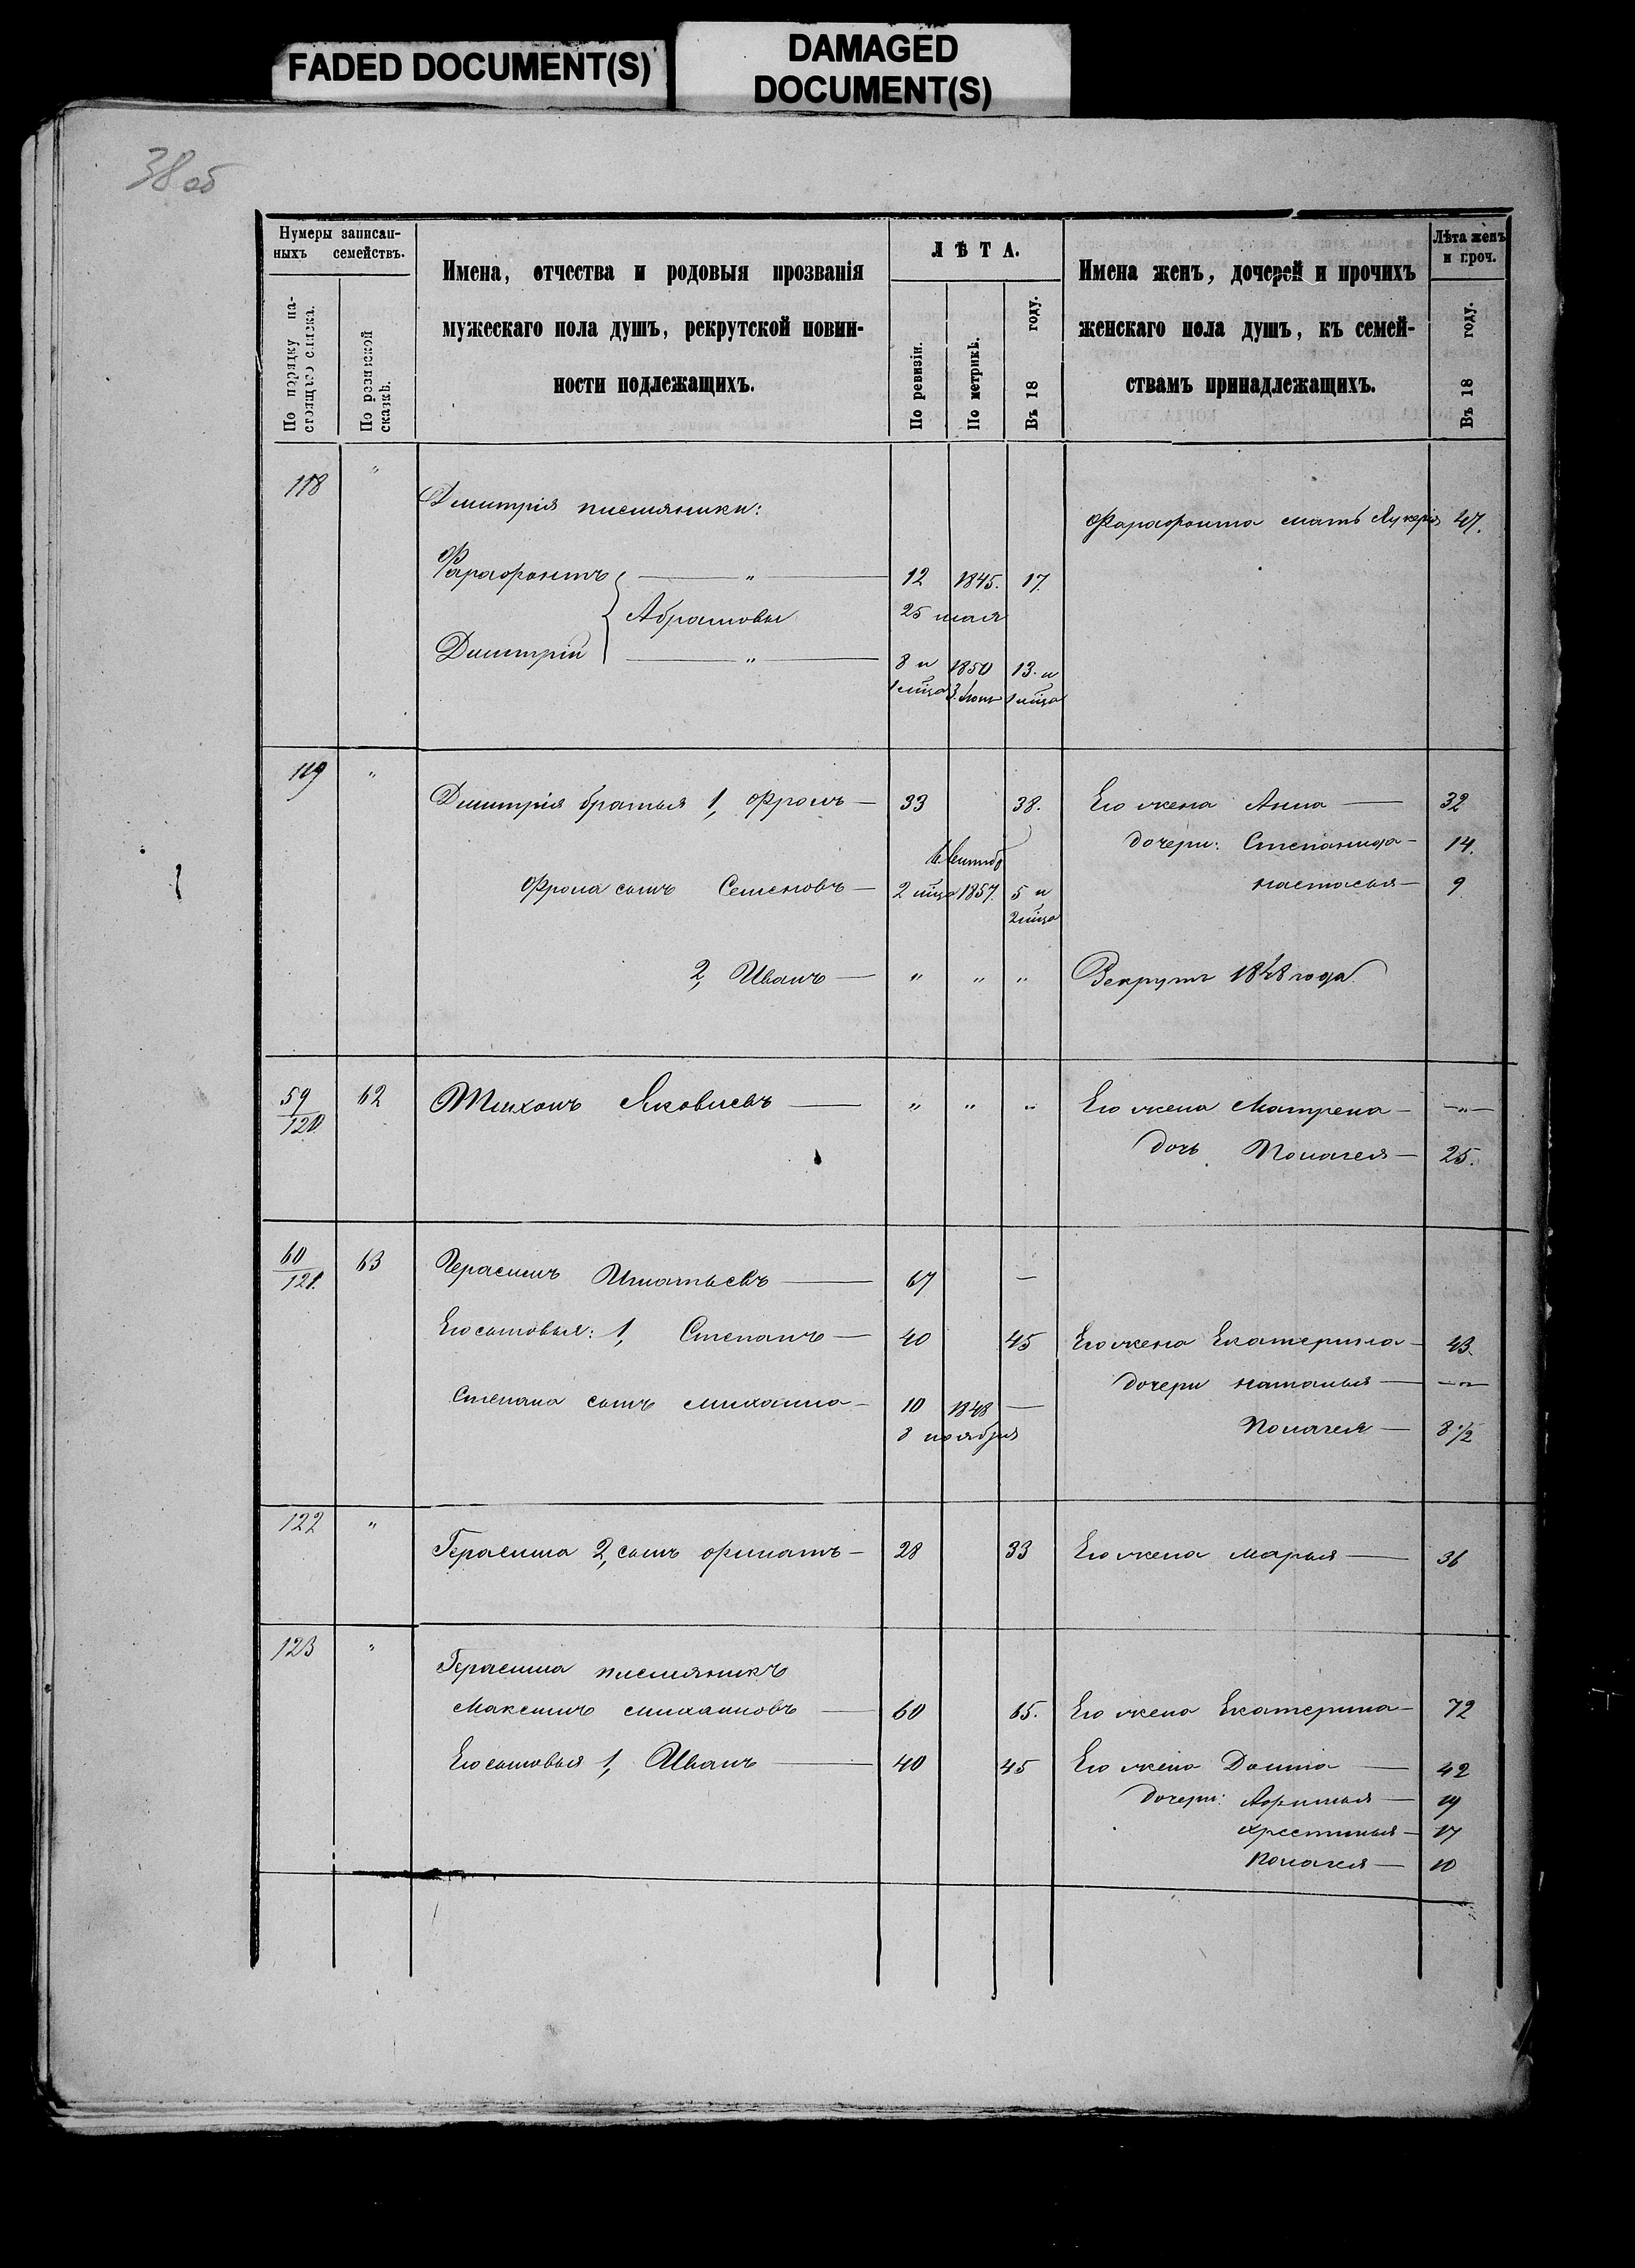 FADED DOCUMENT(S)
DAMAGED
DOCUMENT(S)
38 об
Нумеры записан-
ныхъ семействъ.
По порядку на-
стоящаго списка.
По ревизской
сказкѣ.
Имена, отчества и родовыя прозванія
мужескаго пола душъ, рекрутской повин-
ности подлежащихъ.
ЛѢТА.
По ревизіи.
По метрикѣ.
Въ 18 году.
Имена женъ, дочерей и прочихъ
женскаго пола душъ, къ семей-
ствамъ принадлежащихъ.
Лѣта женъ
и проч.
Въ 18 году.
118 „ Дмитрія племянники:
Фарафонта мать Лукерія 47.
Фарафонтъ — „ — 12 1845. 17.
Абрамовы 25 мая
Дмитрій — „ — 8 и 1850 13. и
1 мѣца 3. 1 мѣца
119 „ Дмитрія братья 1, Фролъ — 33 38. Его жена Анна — 32
дочери: Степанида — 14.
Фрола сынъ Семенъ — 2 мѣца 1857. 5 и настасья — 9
2 мѣца
2, Иванъ — „ „ „ Рекрутъ 1848 года
59/120 62 Тихонъ Яковлевъ — „ „ „ Его жена Матрена — „ —
дочь Полагея — 25.
60/121. 63 Герасимъ Игнатьевъ — 67 —
Его сыновья: 1, Степанъ — 40 45 Его жена Екатерина — 43.
дочери наталья — „ —
Степана сынъ михаила — 10 1848 —
8 ноября Полагея — 8 1/2
122 „ Герасима 2, сынъ филатъ — 28 33 Его жена марья — 36
123 „ Герасима племянникъ
Максимъ михаиловъ — 60 65. Его жена Екатерина — 72
Его сыновья 1, Иванъ — 40 45 Его жена Домна — 42
дочери: Афимья — 19
хрестинья — 17
Полагея — 10